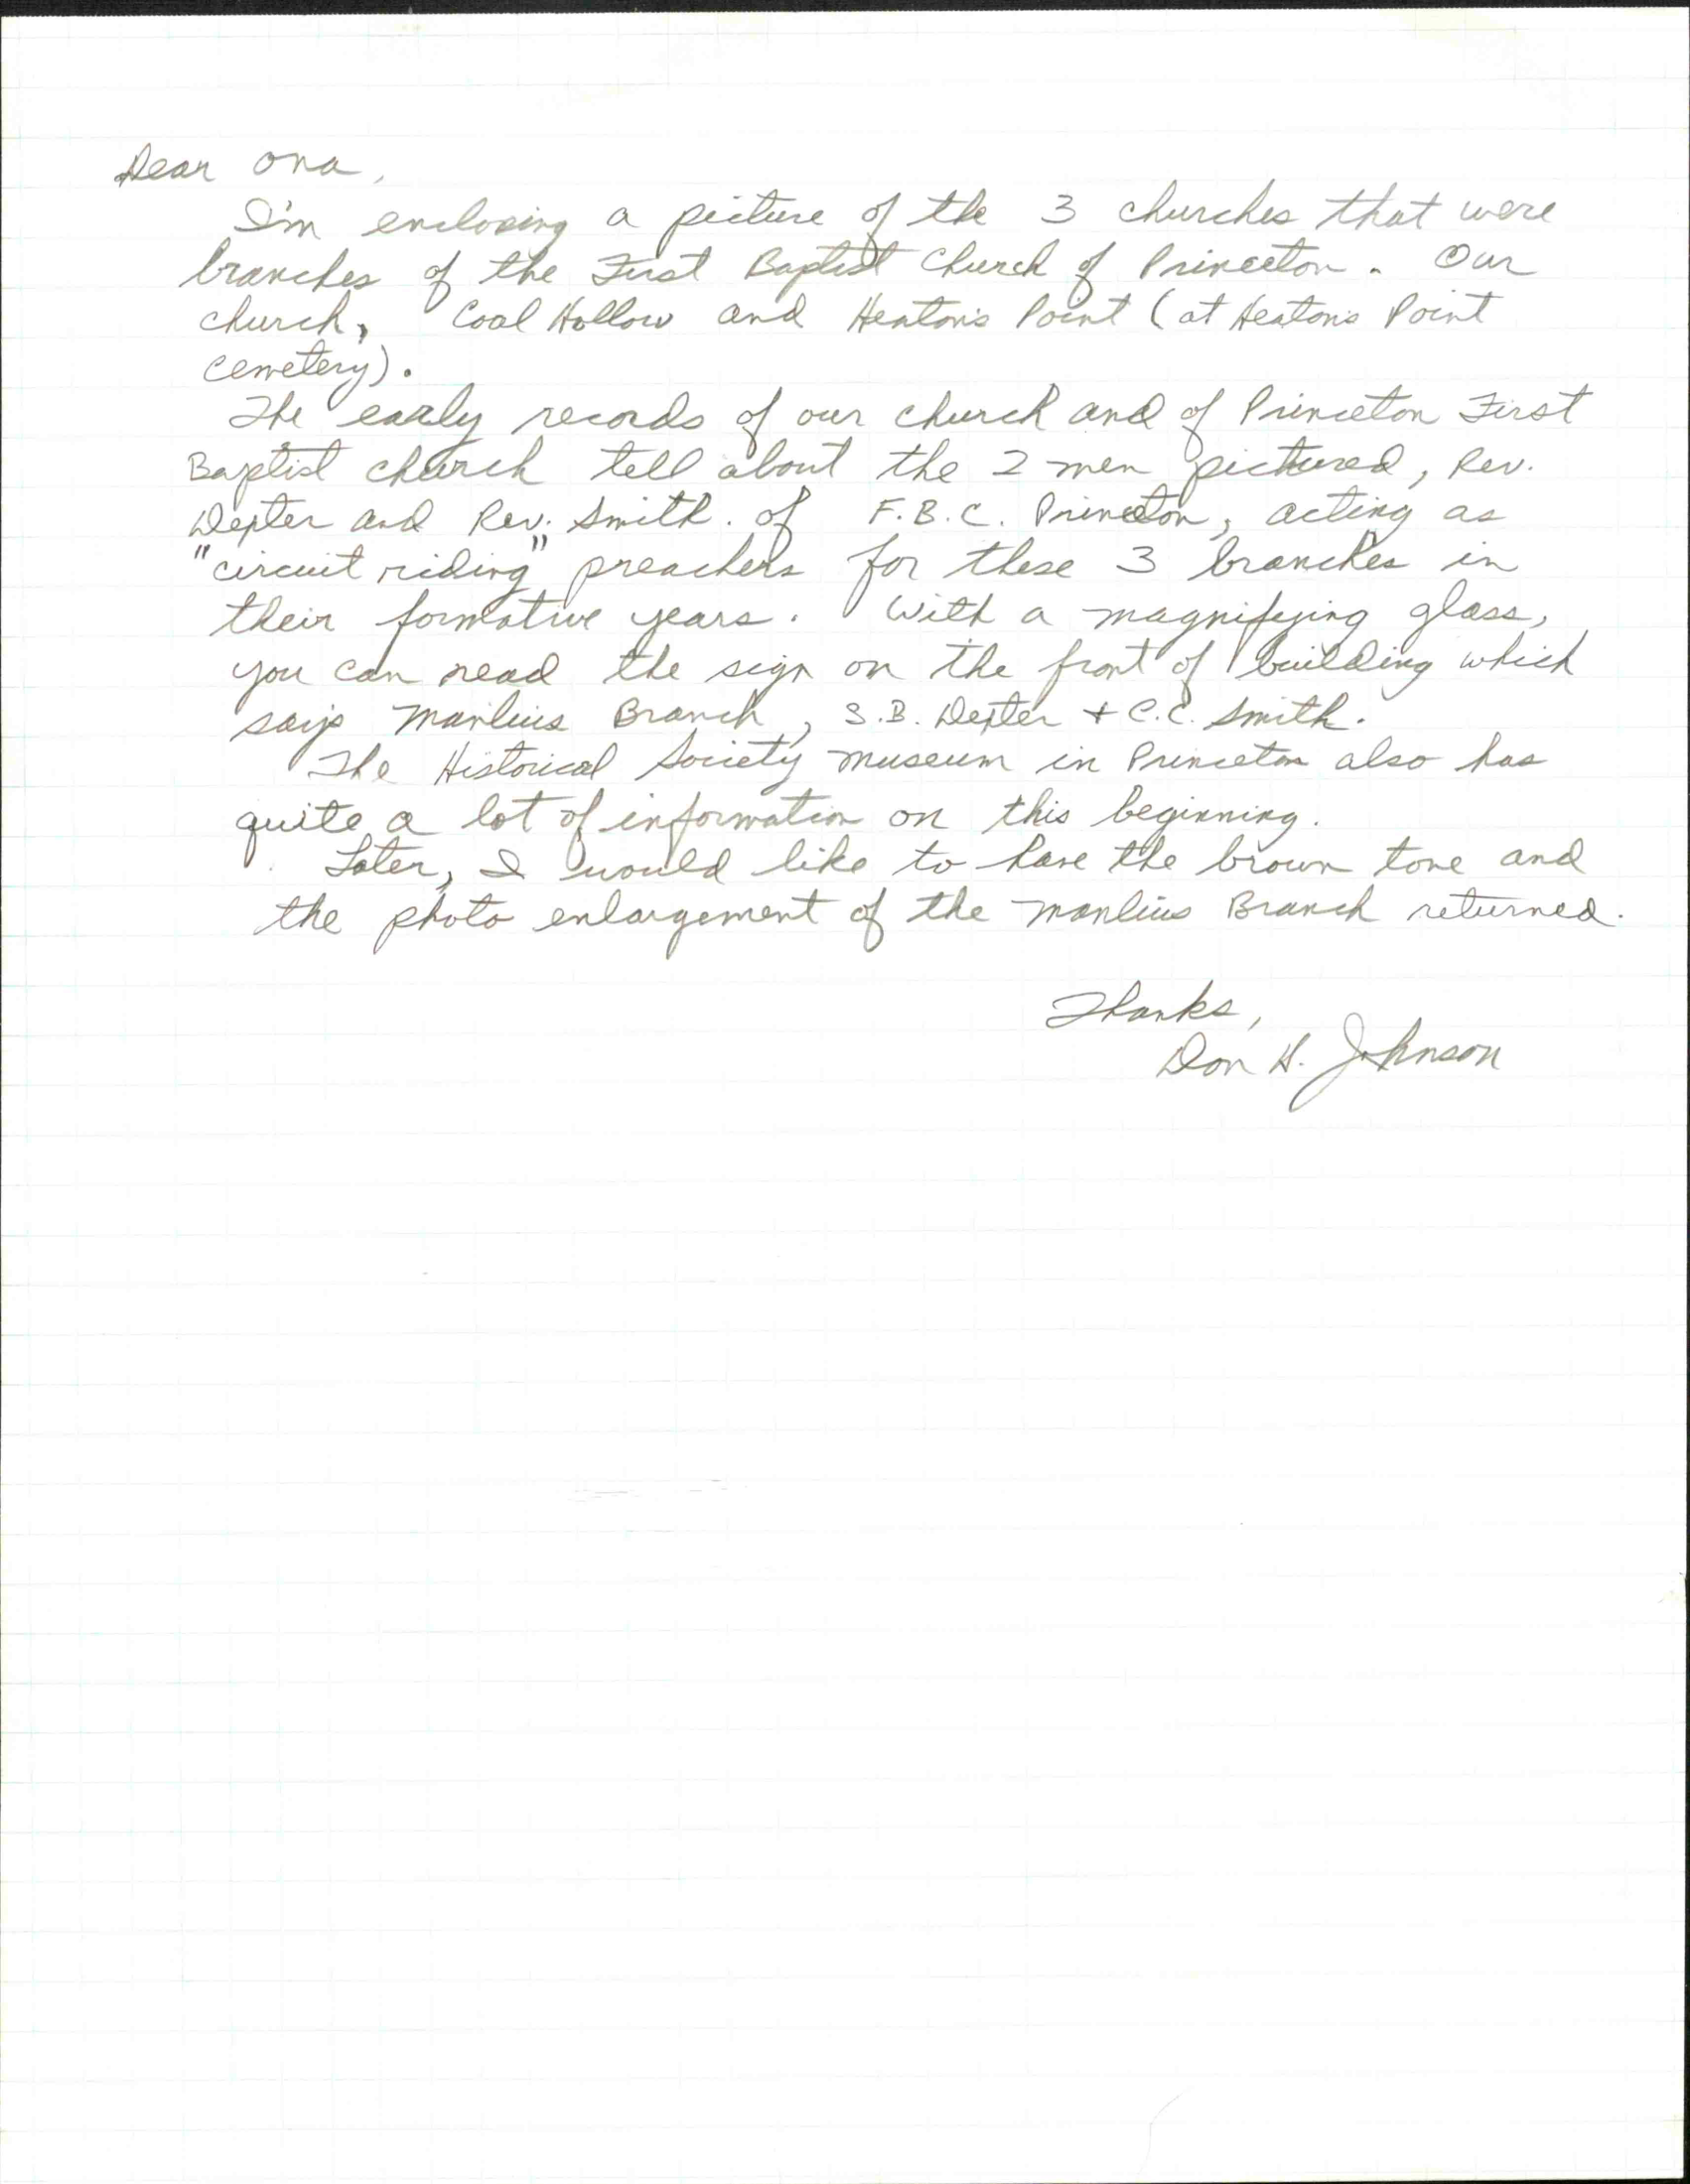 Dear Ona,
I'm enclosing a picture of the 3 churches that were
branches of the First Baptist Church of Princeton. Our
church, Coal Hollow and Heaton's Point (at Heaton's Point
cemetery).
The early records of our church and of Princeton First
Baptist church tell about the 2 men pictured, Rev.
Dexter and Rev. Smith. of F.B.C. Princeton, acting as
"circuit riding" preachers for these 3 branches in
their formative years. With a magnifying glass,
you can read the sign on the front of building which
says Manlius Branch, S.B. Dexter + C.C. Smith.
The Historical Society museum in Princeton also has
quite a lot of information on this beginning.
Later, I would like to have the brown tone and
the photo enlargement of the Manlius Branch returned.
Thanks,
Don H. Johnson